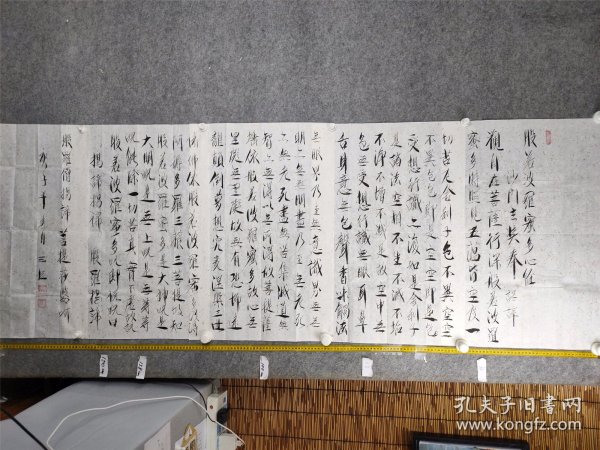 般若波羅蜜多心經
沙門玄奘奉 詔譯
觀自在菩薩行深般若波羅
蜜多時照見五蘊皆空度一
切苦厄舍利子色不異空空
不異色色即是空空即是色
受想行識亦復如是舍利子
是諸法空相不生不滅不垢
不淨不增不減是故空中無
色無受想行識無眼耳鼻
舌身意無色聲香味觸法
無眼界乃至無意識界無無
明亦無無明盡乃至無老死
亦無老死盡無苦集滅道無
智亦無得以無所得故菩提薩
埵依般若波羅蜜多故心無
罣礙無罣礙故無有恐怖遠
離顛倒夢想究竟涅槃三世
諸佛依般若波羅蜜多故得
阿耨多羅三藐三菩提故知
般若波羅蜜多是大神咒是
大明咒是無上咒是無等等
咒能除一切苦真實不虛故說
般若波羅蜜多咒即說咒曰
揭諦揭諦 般羅揭諦
般羅僧揭諦 菩提薩婆訶
庚子年
孔夫子旧书网
www.kongfz.com